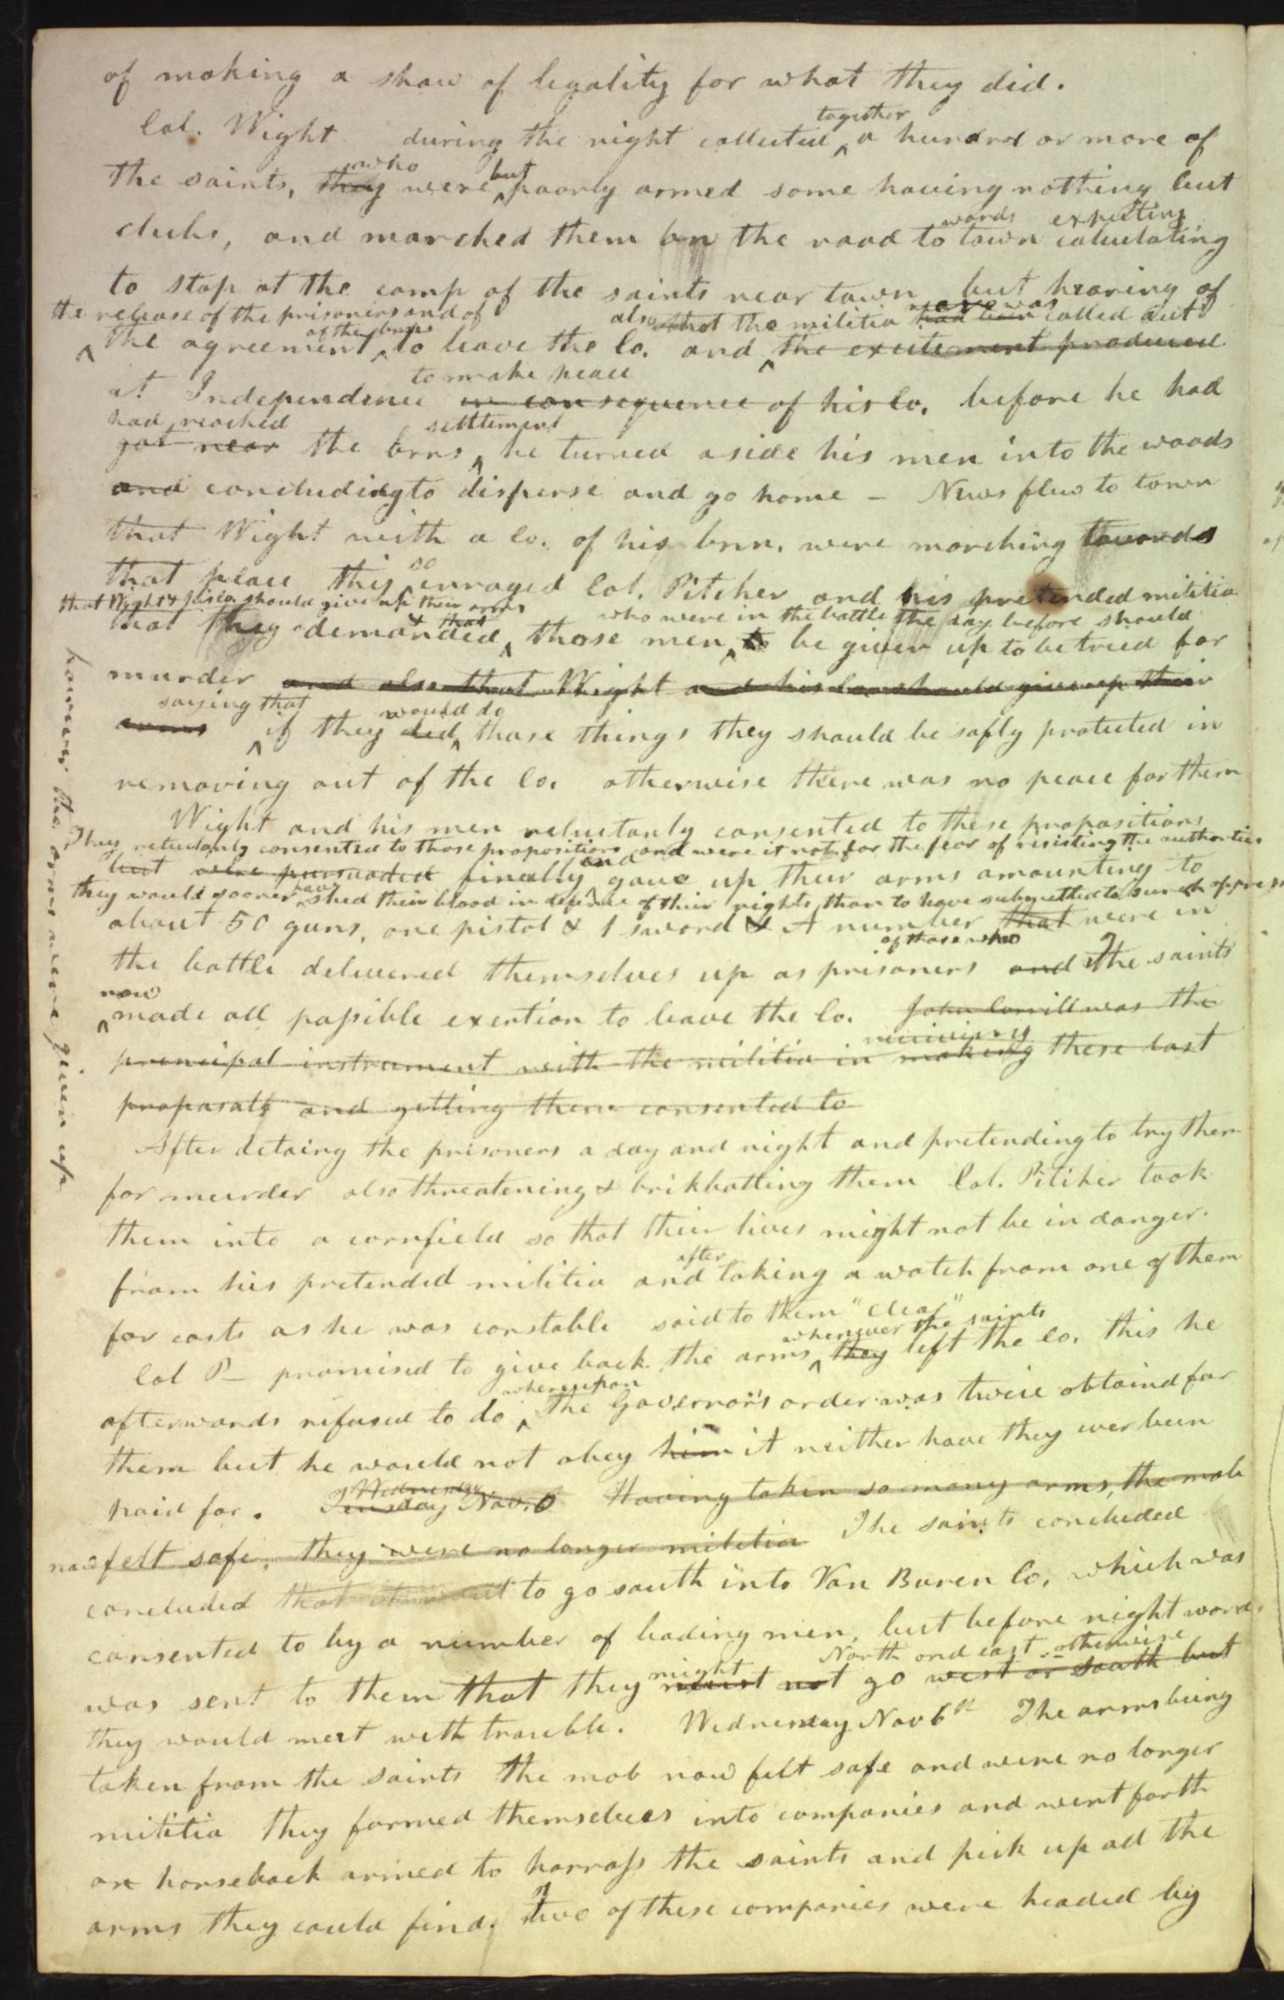 of making a shew of legality for what they did.
Col. Wight during the night collected together a hundred or more of
the saints, they who were but poorly armed some having nothing but
clubs, and marched them on the road towards town calculating expecting
to stop at the camp of the saints near town but hearing of
the release of the prisoners and of also that the militia had been was called out
the agreement of the brns to leave the Co. and the excitement produced
to make peace
at Independence in consequence of his Co. before he had
had reached settlement
got near the brns he turned aside his men into the woods
and concludeding to disperse and go home – News flew to town
that Wight with a Co. of his brn. were marching towards
that place this so enraged Col. Pitcher and his pretended militia
that Wight & should give up their arms & that who were in the battle the day before should
that they demanded, those men to be given up to be tried for
murder and also that Wight and his Co. should give up their
saying that would do
arms if they did those things they should be safly protected in
removing out of the Co. otherwise there was no peace for them
Wight and his men reluctantly consented to these propositions
They reluctanly consented to those propositions and were it not for the fear of resisting the authorties
but were pursuaded finally and gave up their arms amounting to
they would sooner have shed their blood in defence of their rights, than to have submitted to such oppres
about 50 guns, one pistol & 1 sword & A number that were in
of those who
the battle delivered themselves up as prisoners and The saints
now
made all possible exertion to leave the Co. John Corrill was the
receiving
principal instrument with the militia in making these last
proposals and getting them consented to
After detaing the prisoners a day and night and pretending to try them
for murder also threatening & brikbatting them Col. Pitcher took
them into a cornfield so that their lives might not be in danger
from his pretended militia and after taking a watch from one of them
for costs as he was constable said to them "clear"
whenever the saints
Col P– promised to give back the arms they left the Co. this he
whereupon
afterwards refused to do The Governor's order was twice obtaind for
them but he would not obey him it neither have they ever been
paid for. Tuesday Wednesday Nov. 6 Having taken so many arms, the mob
now felt safe, they were no longer militia The saints concluded
concluded that to go south into Van Buren Co, which was
consented to by a number of leading men, but before night word
might North and east otherwise
was sent to them that they must not go west or south but
they would meet with trouble. Wednesday Nov 6th The arms being
taken from the saints the mob now felt safe and were no longer
militia they formed themselves into companies and went forth
on horseback armed to harrass the saints and pick up all the
arms they could find. Two of these companies were headed by
however the arms were given up